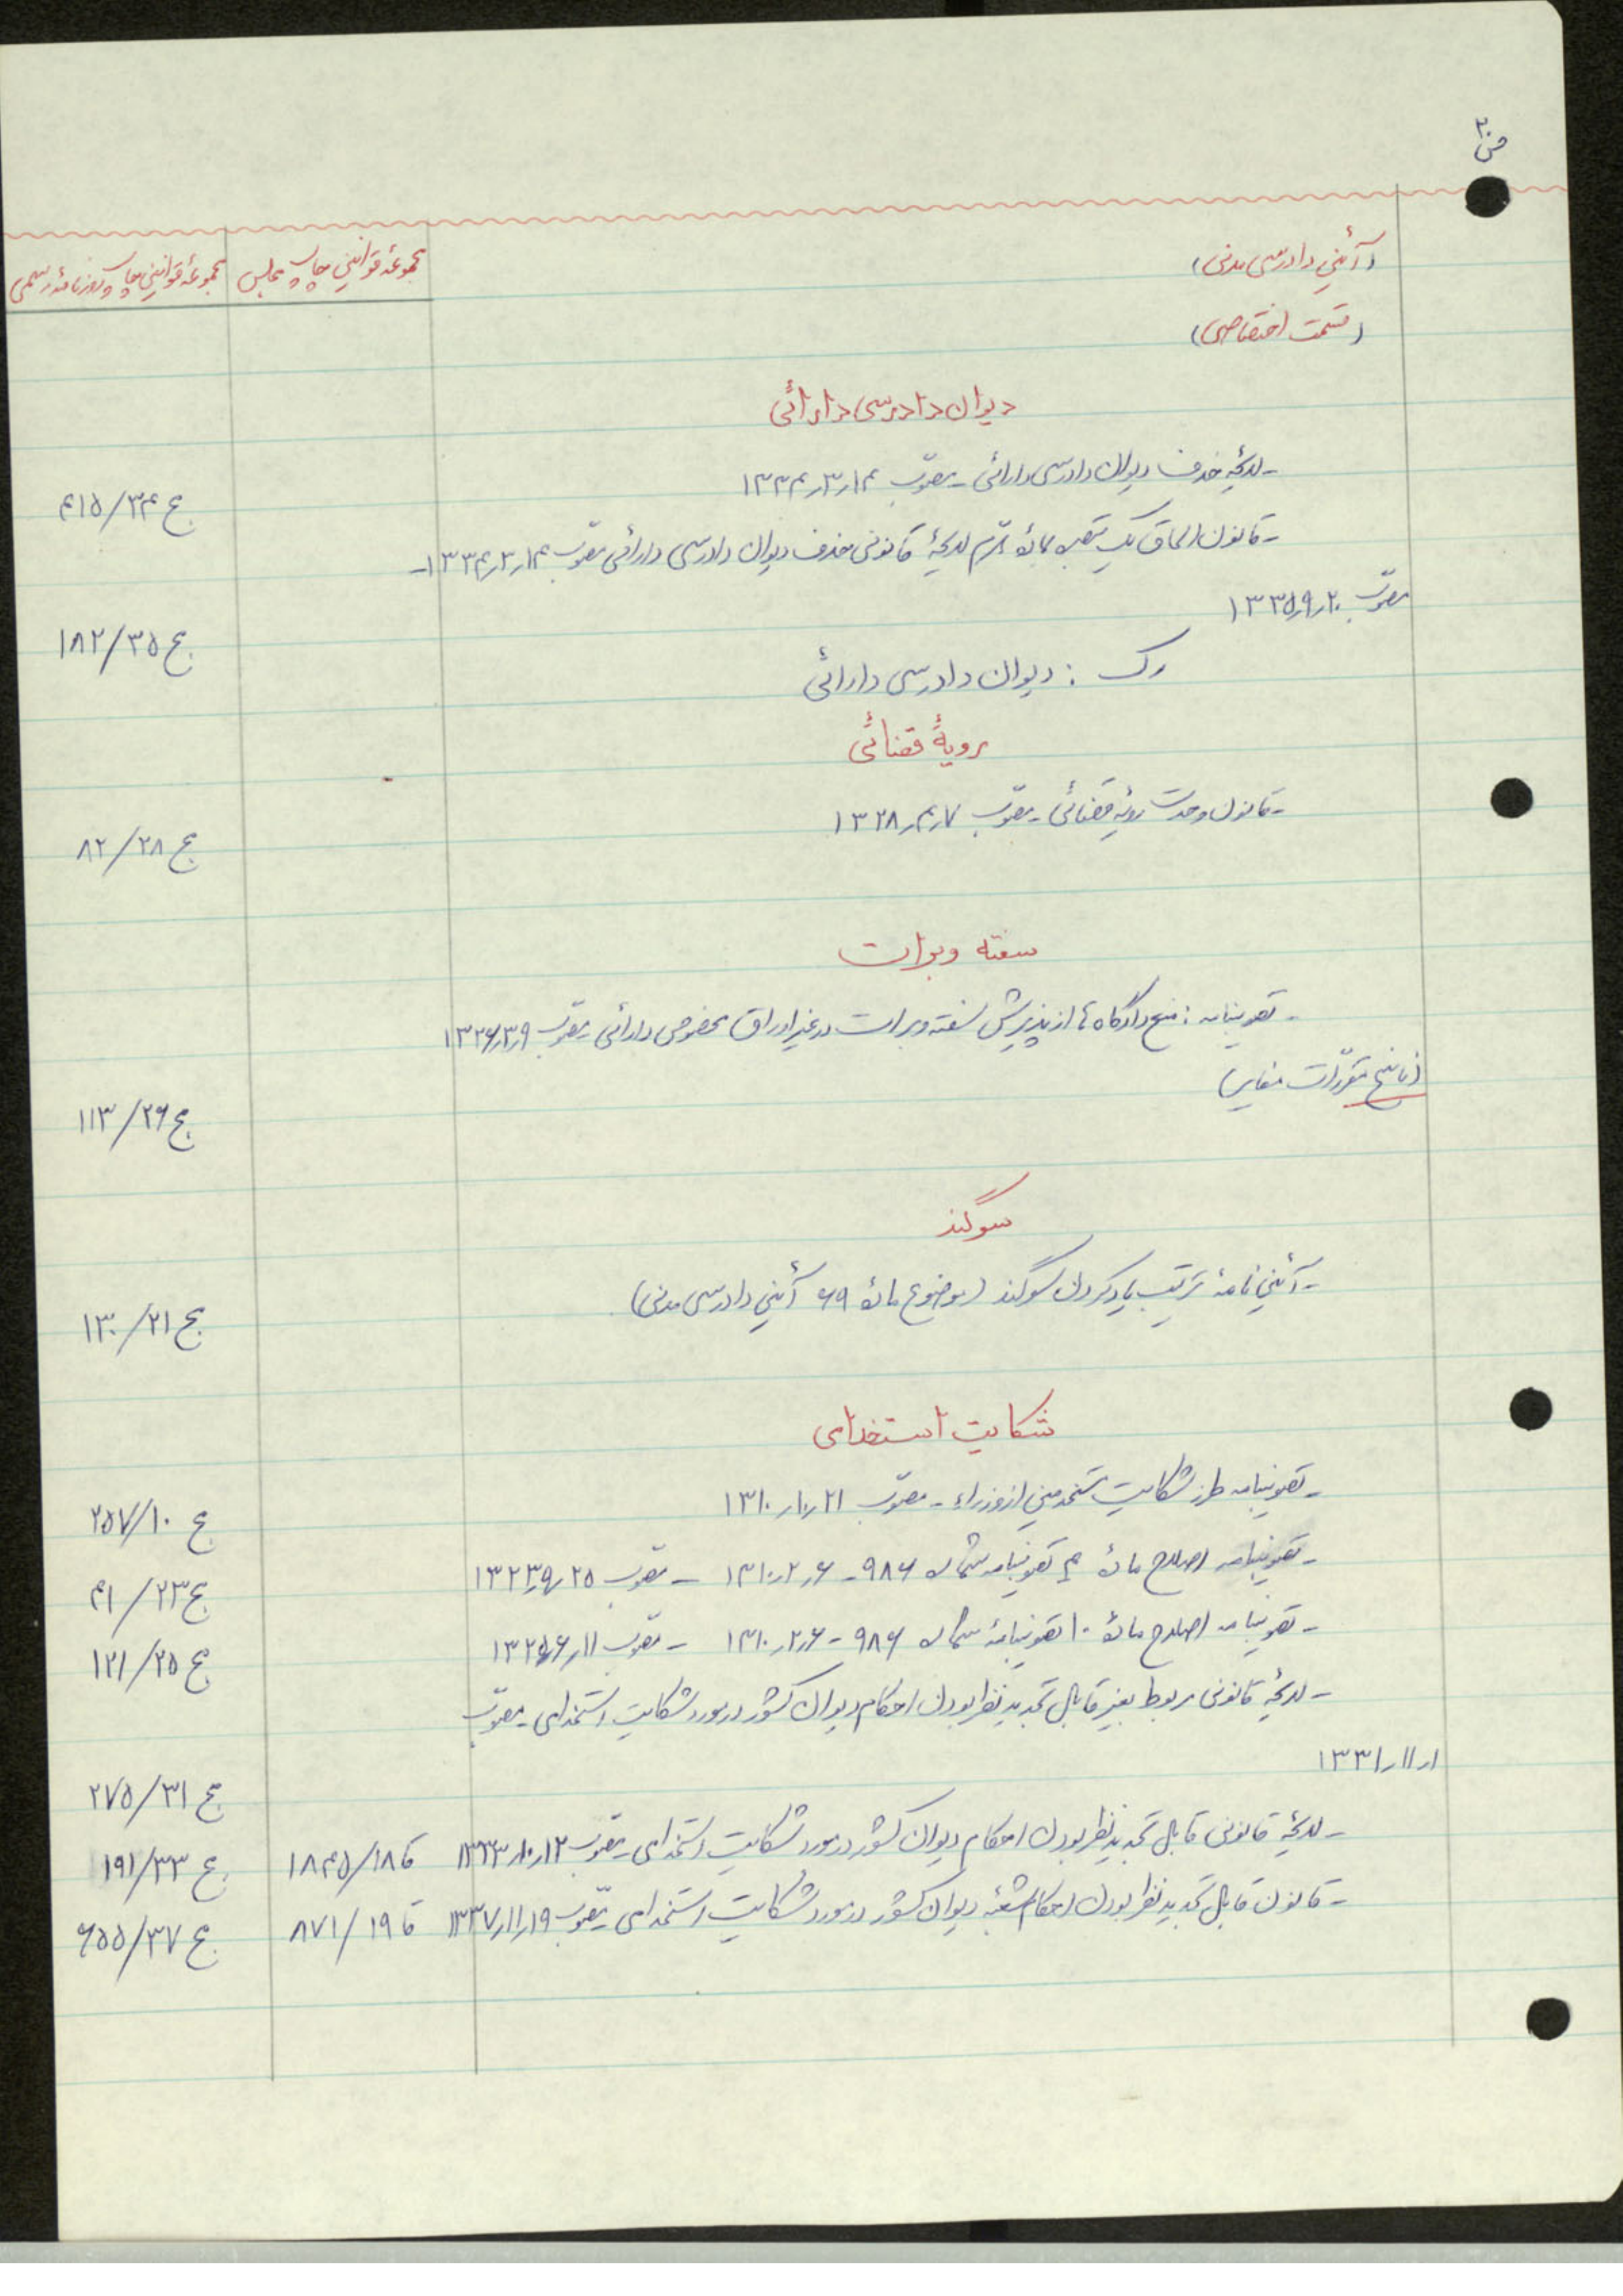 ص ۳۰
(آئین دادرسی مدنی)
مجموعهٔ قوانین چاپ مجلس
مجموعهٔ قوانین چاپ روزنامهٔ رسمی
(قسمت اختصاصی)
دیوان دادرسی دارائی
- لایحهٔ حذف دیوان دادرسی دارائی - مصوّب ۱۴ر۳ر۱۳۳۴
ج ۳۴/۴۱۵
- قانون الحاق یک تبصره بمادهٔ لایحهٔ قانونی حذف دیوان دادرسی دارائی مصوّب ۱۴ر۳ر۱۳۳۴ -
مصوّب ۲۰ر۹ر۱۳۳۵
ج ۳۵/۱۸۲
رک : دیوان دادرسی دارائی
رویهٔ قضائی
- قانون وحدت رویهٔ قضائی - مصوّب ۷ر۴ر۱۳۲۸
ج ۲۸/۸۲
سفته و برات
- تصویبنامه : منع دادگاه‌ها از پذیرش سفته و برات در غیر اوراق مخصوص دارائی - مصوّب ۹ر۳ر۱۳۲۶
(ناسخ مقرّرات مغایر)
ج ۲۶/۱۱۳
سوگند
- آئین‌نامهٔ ترتیب یاد کردن سوگند (موضوع مادهٔ ۶۹ آئین دادرسی مدنی)
ج ۲۱/۱۳۰
شکایت استخدامی
- تصویبنامه طرز شکایت مستخدمین از وزراء - مصوّب ۲۱ر۱۰ر۱۳۱۰
ج ۱۰/۲۵۷
- تصویبنامه اصلاح مادهٔ ۴ تصویبنامه شماره ۹۸۶ - ۶ر۲ر۱۳۱۰ - مصوّب ۲۵ر۹ر۱۳۲۳
ج ۲۳/۴۱
- تصویبنامه اصلاح مادهٔ ۱۰ تصویبنامهٔ شماره ۹۸۶ - ۶ر۲ر۱۳۱۰ - مصوّب ۱۱ر۶ر۱۳۲۵
ج ۲۵/۱۲۱
- لایحهٔ قانونی مربوط بغیر قابل تجدید نظر بودن احکام دیوان کشور در مورد شکایت استخدامی - مصوّب
۱ر۱۱ر۱۳۳۱
ج ۳۱/۲۷۵
- لایحهٔ قانونی قابل تجدید نظر بودن احکام دیوان کشور در مورد شکایت استخدامی - مصوّب ۱۲ر۱۰ر۱۳۳۳
قا ۱۸/۱۸۴۵
ج ۳۳/۱۹۱
- قانون قابل تجدید نظر بودن احکام شعبهٔ دیوان کشور در مورد شکایت استخدامی - مصوّب ۱۹ر۱۱ر۱۳۳۷
قا ۱۹/۸۷۱
ج ۳۷/۶۵۵